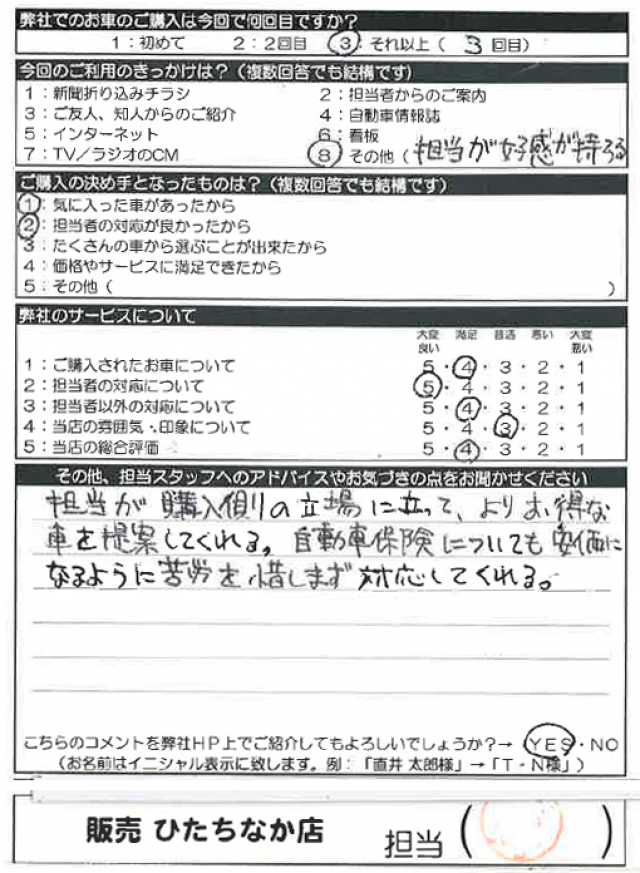 弊社でのお車のご購入は今回で何回目ですか？
1：初めて 2：2回目 3：それ以上（ 3 回目）
今回のご利用のきっかけは？（複数回答でも結構です）
1：新聞折り込みチラシ 2：担当者からのご案内
3：ご友人、知人からのご紹介 4：自動車情報誌
5：インターネット 6：看板
7：TV／ラジオのCM 8：その他（担当が好感が持てる
ご購入の決め手となったものは？（複数回答でも結構です）
1：気に入った車があったから
2：担当者の対応が良かったから
3：たくさんの車から選ぶことが出来たから
4：価格やサービスに満足できたから
5：その他（ ）
弊社のサービスについて
大変良い 満足 普通 悪い 大変悪い
1：ご購入されたお車について 5・4・3・2・1
2：担当者の対応について 5・4・3・2・1
3：担当者以外の対応について 5・4・3・2・1
4：当店の雰囲気・印象について 5・4・3・2・1
5：当店の総合評価 5・4・3・2・1
その他、担当スタッフへのアドバイスやお気づきの点をお聞かせください
担当が購入側の立場に立って、よりお得な
車を提案してくれる。自動車保険についても安価に
なるように苦労を惜しまず対応してくれる。
こちらのコメントを弊社HP上でご紹介してもよろしいでしょうか？→ YES・NO
（お名前はイニシャル表示に致します。例：「直井 太郎様」→「T・N様」）
販売 ひたちなか店 担当（ ）